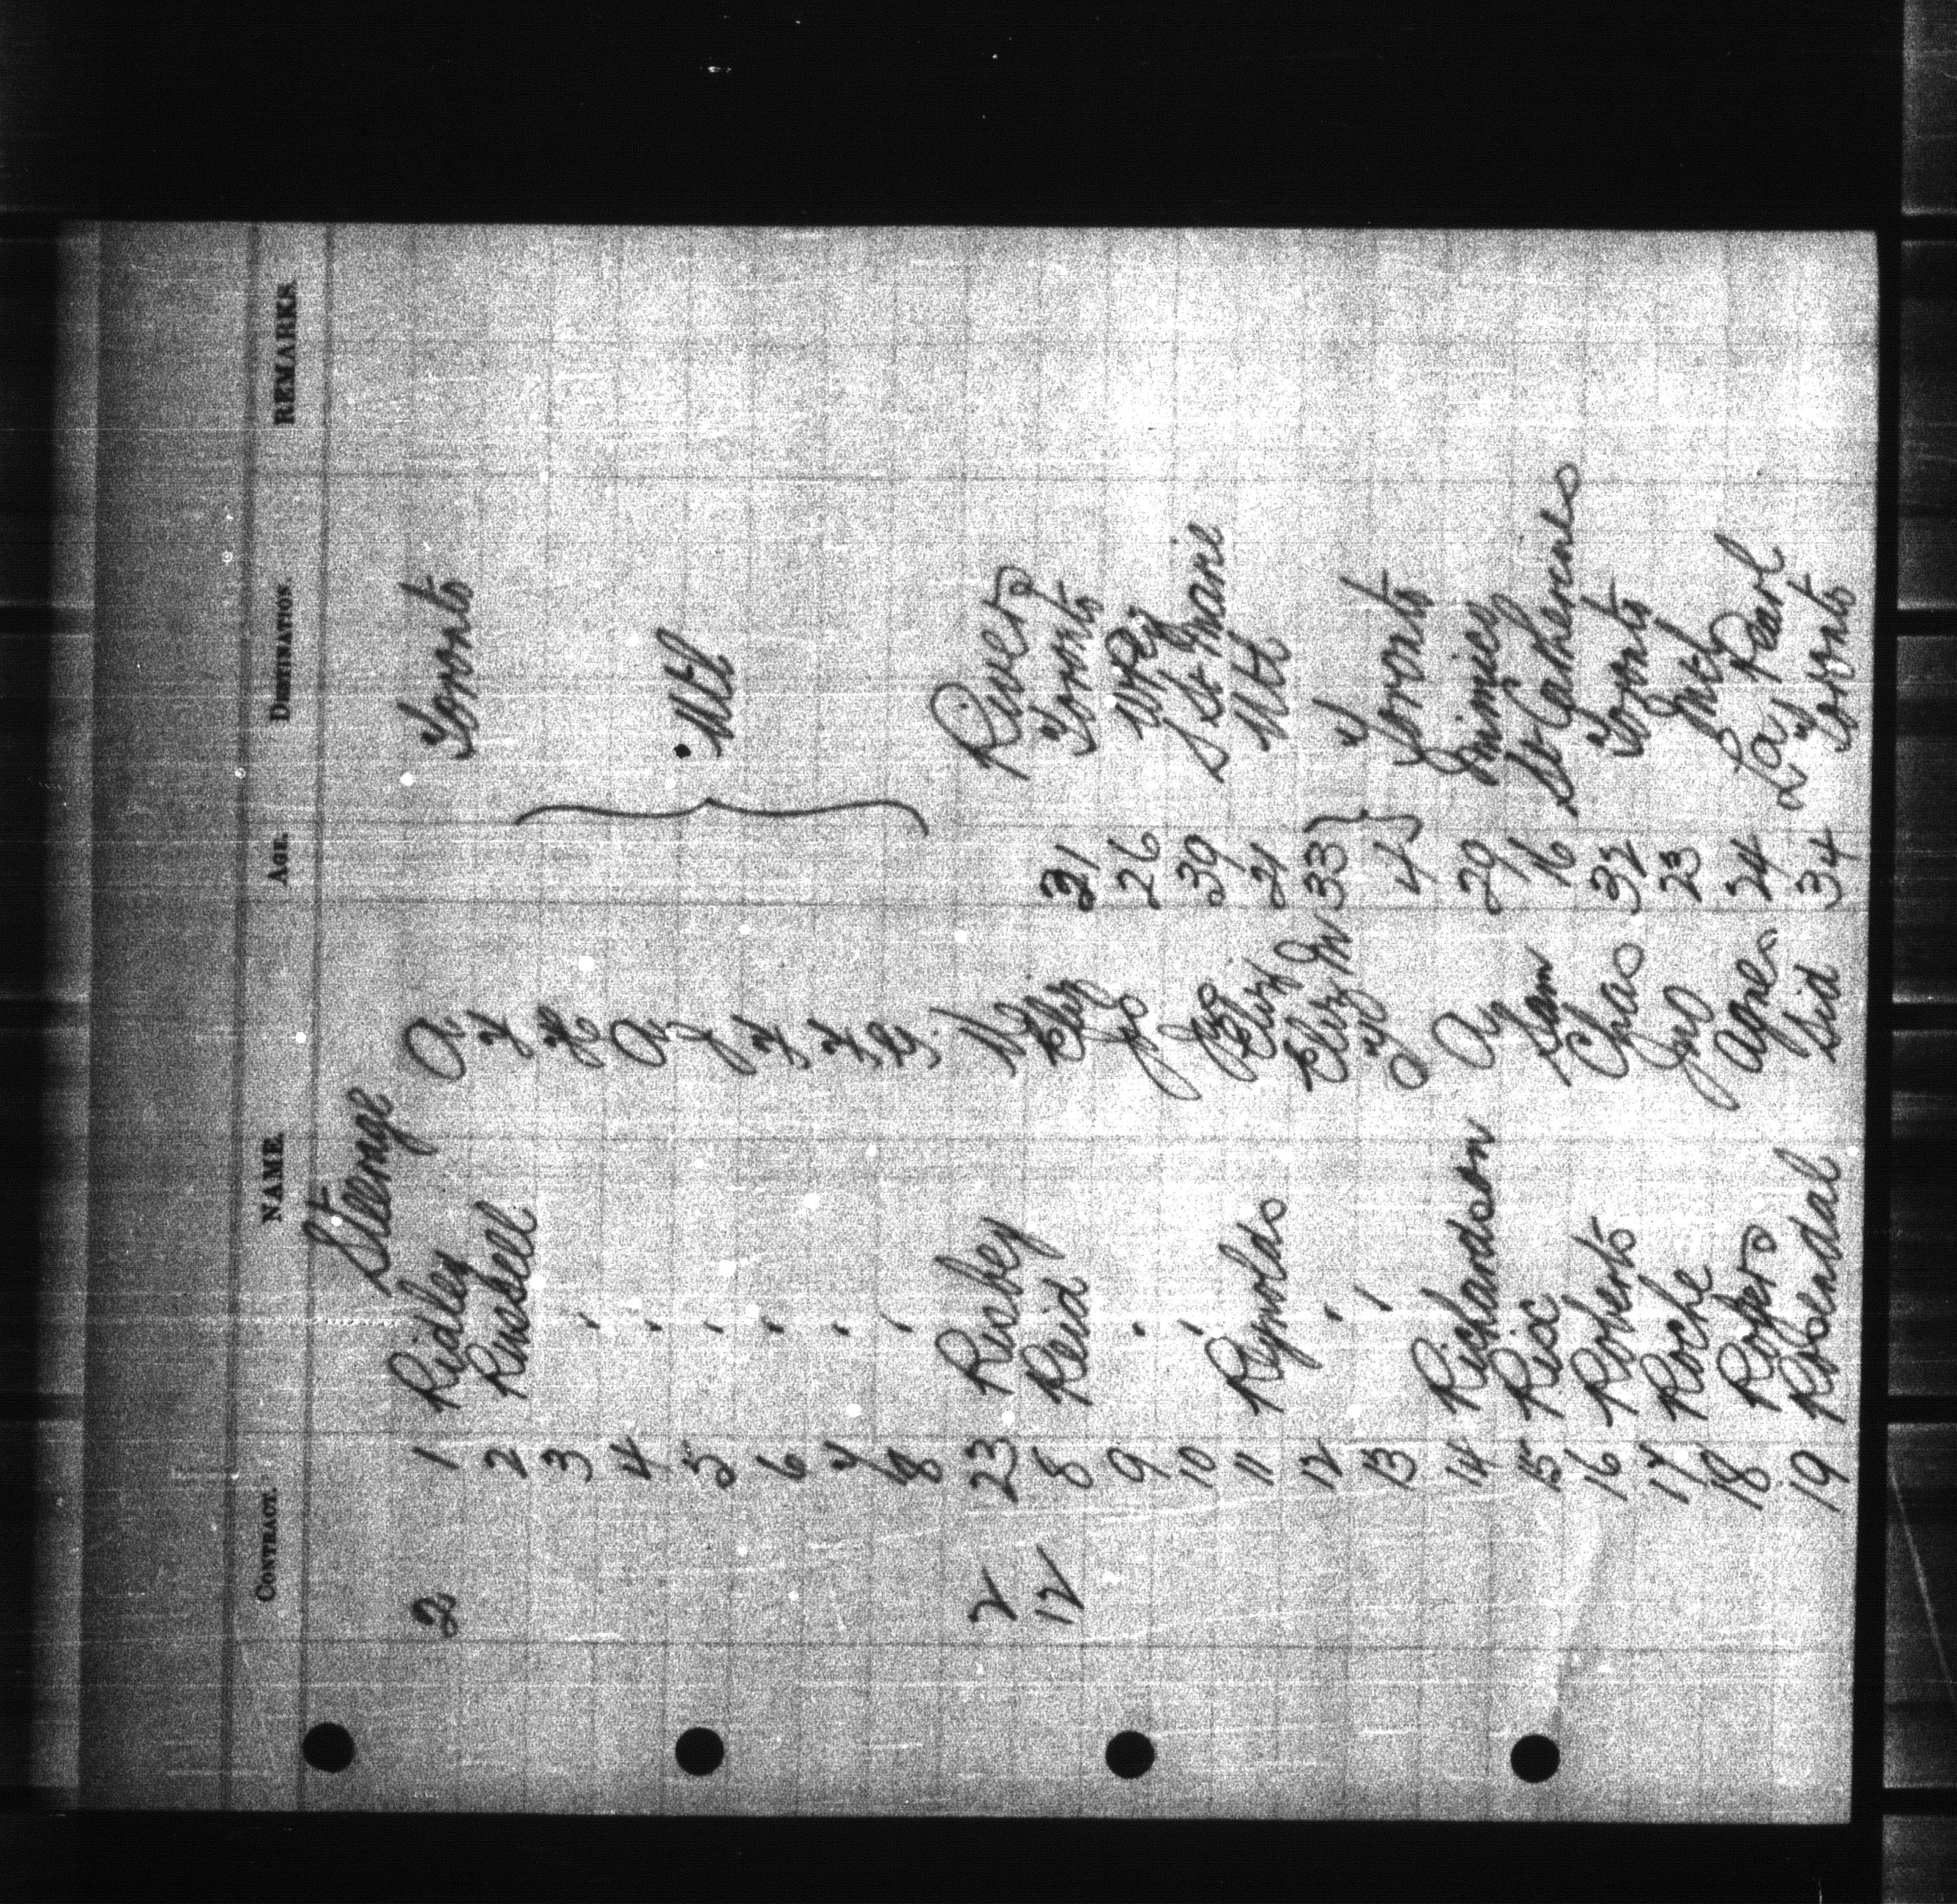 CONTRACT. NAME. AGE. DESTINATION. REMARKS.
Steerage
2 1 Ridley A Toronto
2 Russell
3 "
4 " A Mtl
5 "
6 "
7 "
8 "
2 23 Rusbey Rivers
12 8 Reid Eliz 31 Toronto
9 " Jas 26 Wpeg
10 " Jas 39 S St Marie
11 Reynolds Eliz 21 Mtl
12 " Eliz M 33
13 " 4 Toronto
14 Richardson A 29 Mimico
15 Rix Sam 16 St Catherines
16 Roberts Chas 32 Toronto
17 Roche Jno 23
18 Rogers Agnes 24 La Pearl
19 Rosendal Sid 34 Toronto